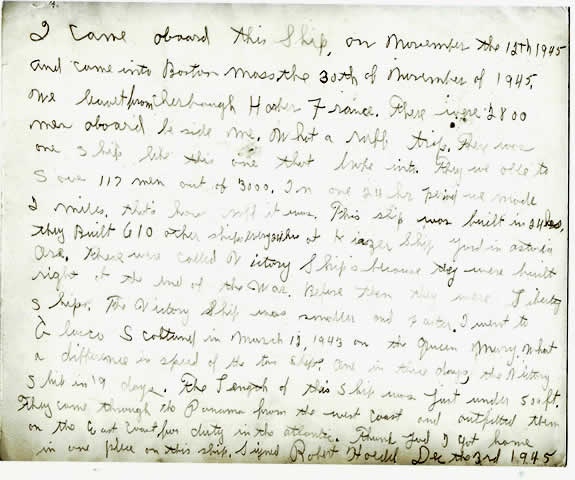 I came aboard this Ship, on November the 12th 1945
and came into Boston Mass the 30th of November of 1945.
We leave from Cherbough France. There were 2800
men aboard beside me. What a ruff trip. There was
one Ship like this one that broke into. They we able to
Save 117 men out of 3000. In one 24 hr period we made
2 miles. that's how ruff it was. This ship was built in 24
they Built 610 other ships at Kiazer Ship yard in astoria
Ore. these were called Victory Ships because they were built
right at the end of the War. Before then they were Liberty
Ships. The Victory Ship was smaller and faster. I went to
Scotland in March 1943 on the Queen Mary. What
a difference in speed of the two ships. one in three days, the Victory
Ship in 9 days. The Length of this Ship was just under 500 ft.
They came through the Panama from the west coast and outfitted them
on the East coast for duty in the atlantic. Thank God I got home
in one piece on this ship. Signed Robert Dec the 3rd 1945